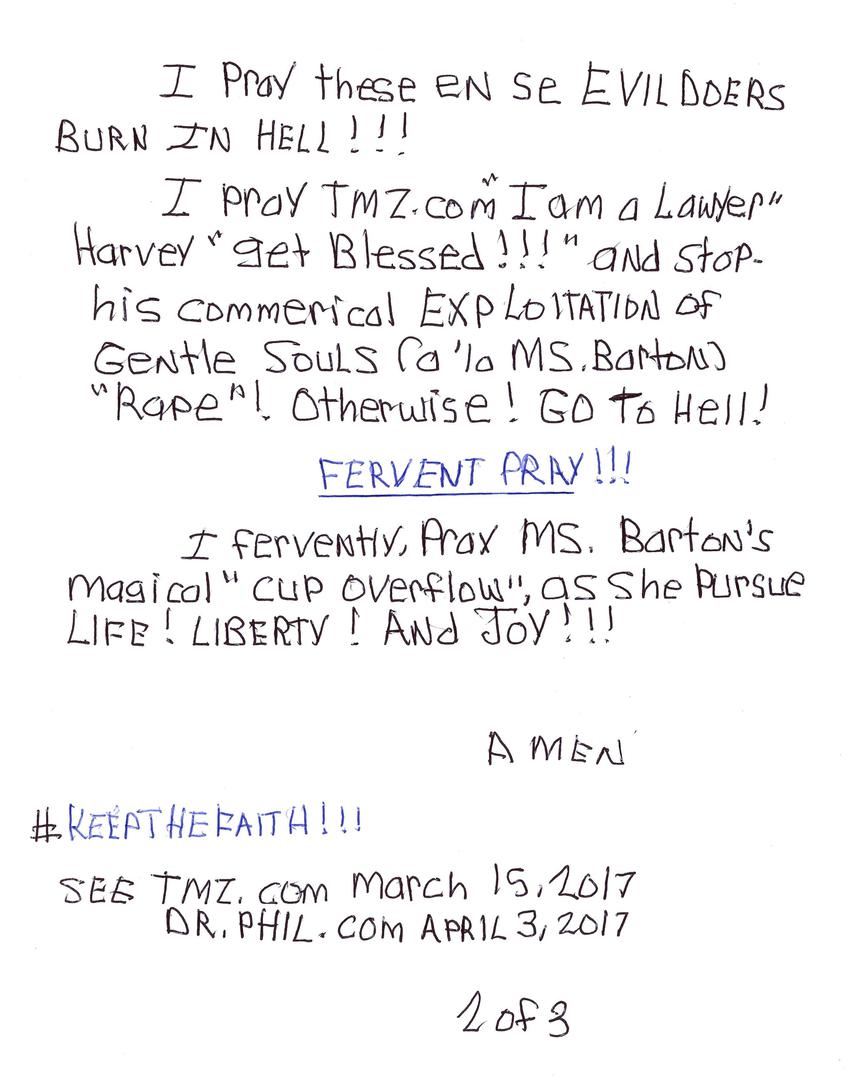 I Pray these EN SE EVIL DOERS
BURN IN HELL!!!
I pray TMZ.com "I am a Lawyer"
Harvey "get Blessed!!!" and stop-
his commerical EXPLOITATION of
Gentle Souls (a'la MS. Barton)
"Rape"! Otherwise! GO TO Hell!
FERVENT PRAY!!!
I fervently, Pray MS. Barton's
magical "cup overflow", as she pursue
LIFE! LIBERTY! And JOY!!!
A MEN
#KEEPTHEFAITH!!!
SEE TMZ.com March 15, 2017
DR.PHIL.COM APRIL 3, 2017
2 of 3